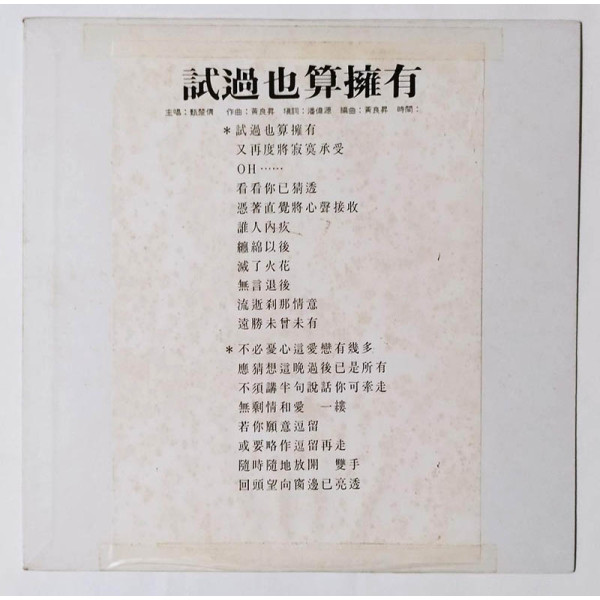 試過也算擁有
主唱：甄楚倩 作曲：黃良昇 填詞：潘偉源 編曲：黃良昇 時間：
＊試過也算擁有
又再度將寂寞承受
OH……
看看你已猜透
憑著直覺將心聲接收
誰人內疚
纏綿以後
滅了火花
無言退後
流逝剎那情意
遠勝未曾未有
＊不必憂心這愛戀有幾多
應猜想這晚過後已是所有
不須講半句說話你可牽走
無剩情和愛 一縷
若你願意逗留
或要略作逗留再走
隨時隨地放開 雙手
回頭望向窗邊已亮透